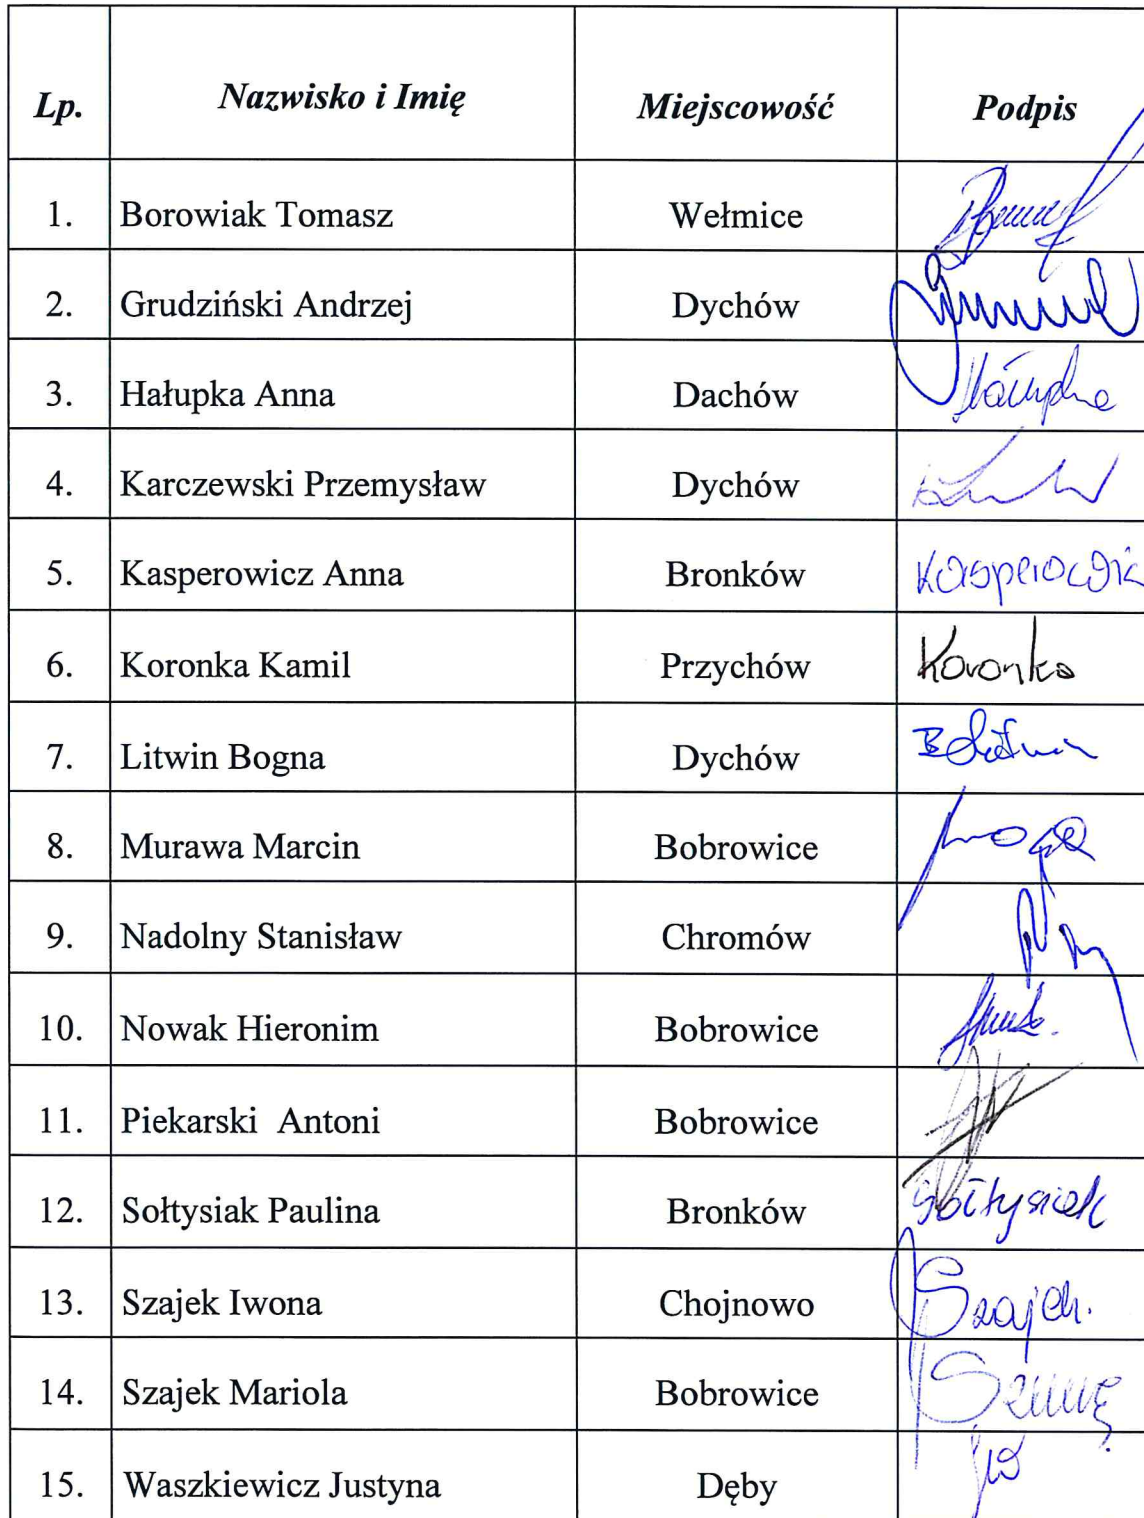 Lp. Nazwisko i Imię Miejscowość Podpis
1. Borowiak Tomasz Wełmice
2. Grudziński Andrzej Dychów
3. Hałupka Anna Dachów Hałupka
4. Karczewski Przemysław Dychów
5. Kasperowicz Anna Bronków Kasperowic
6. Koronka Kamil Przychów Koronka
7. Litwin Bogna Dychów B Litwin
8. Murawa Marcin Bobrowice
9. Nadolny Stanisław Chromów
10. Nowak Hieronim Bobrowice
11. Piekarski Antoni Bobrowice
12. Sołtysiak Paulina Bronków Sołtysiak
13. Szajek Iwona Chojnowo Szajek
14. Szajek Mariola Bobrowice
15. Waszkiewicz Justyna Dęby